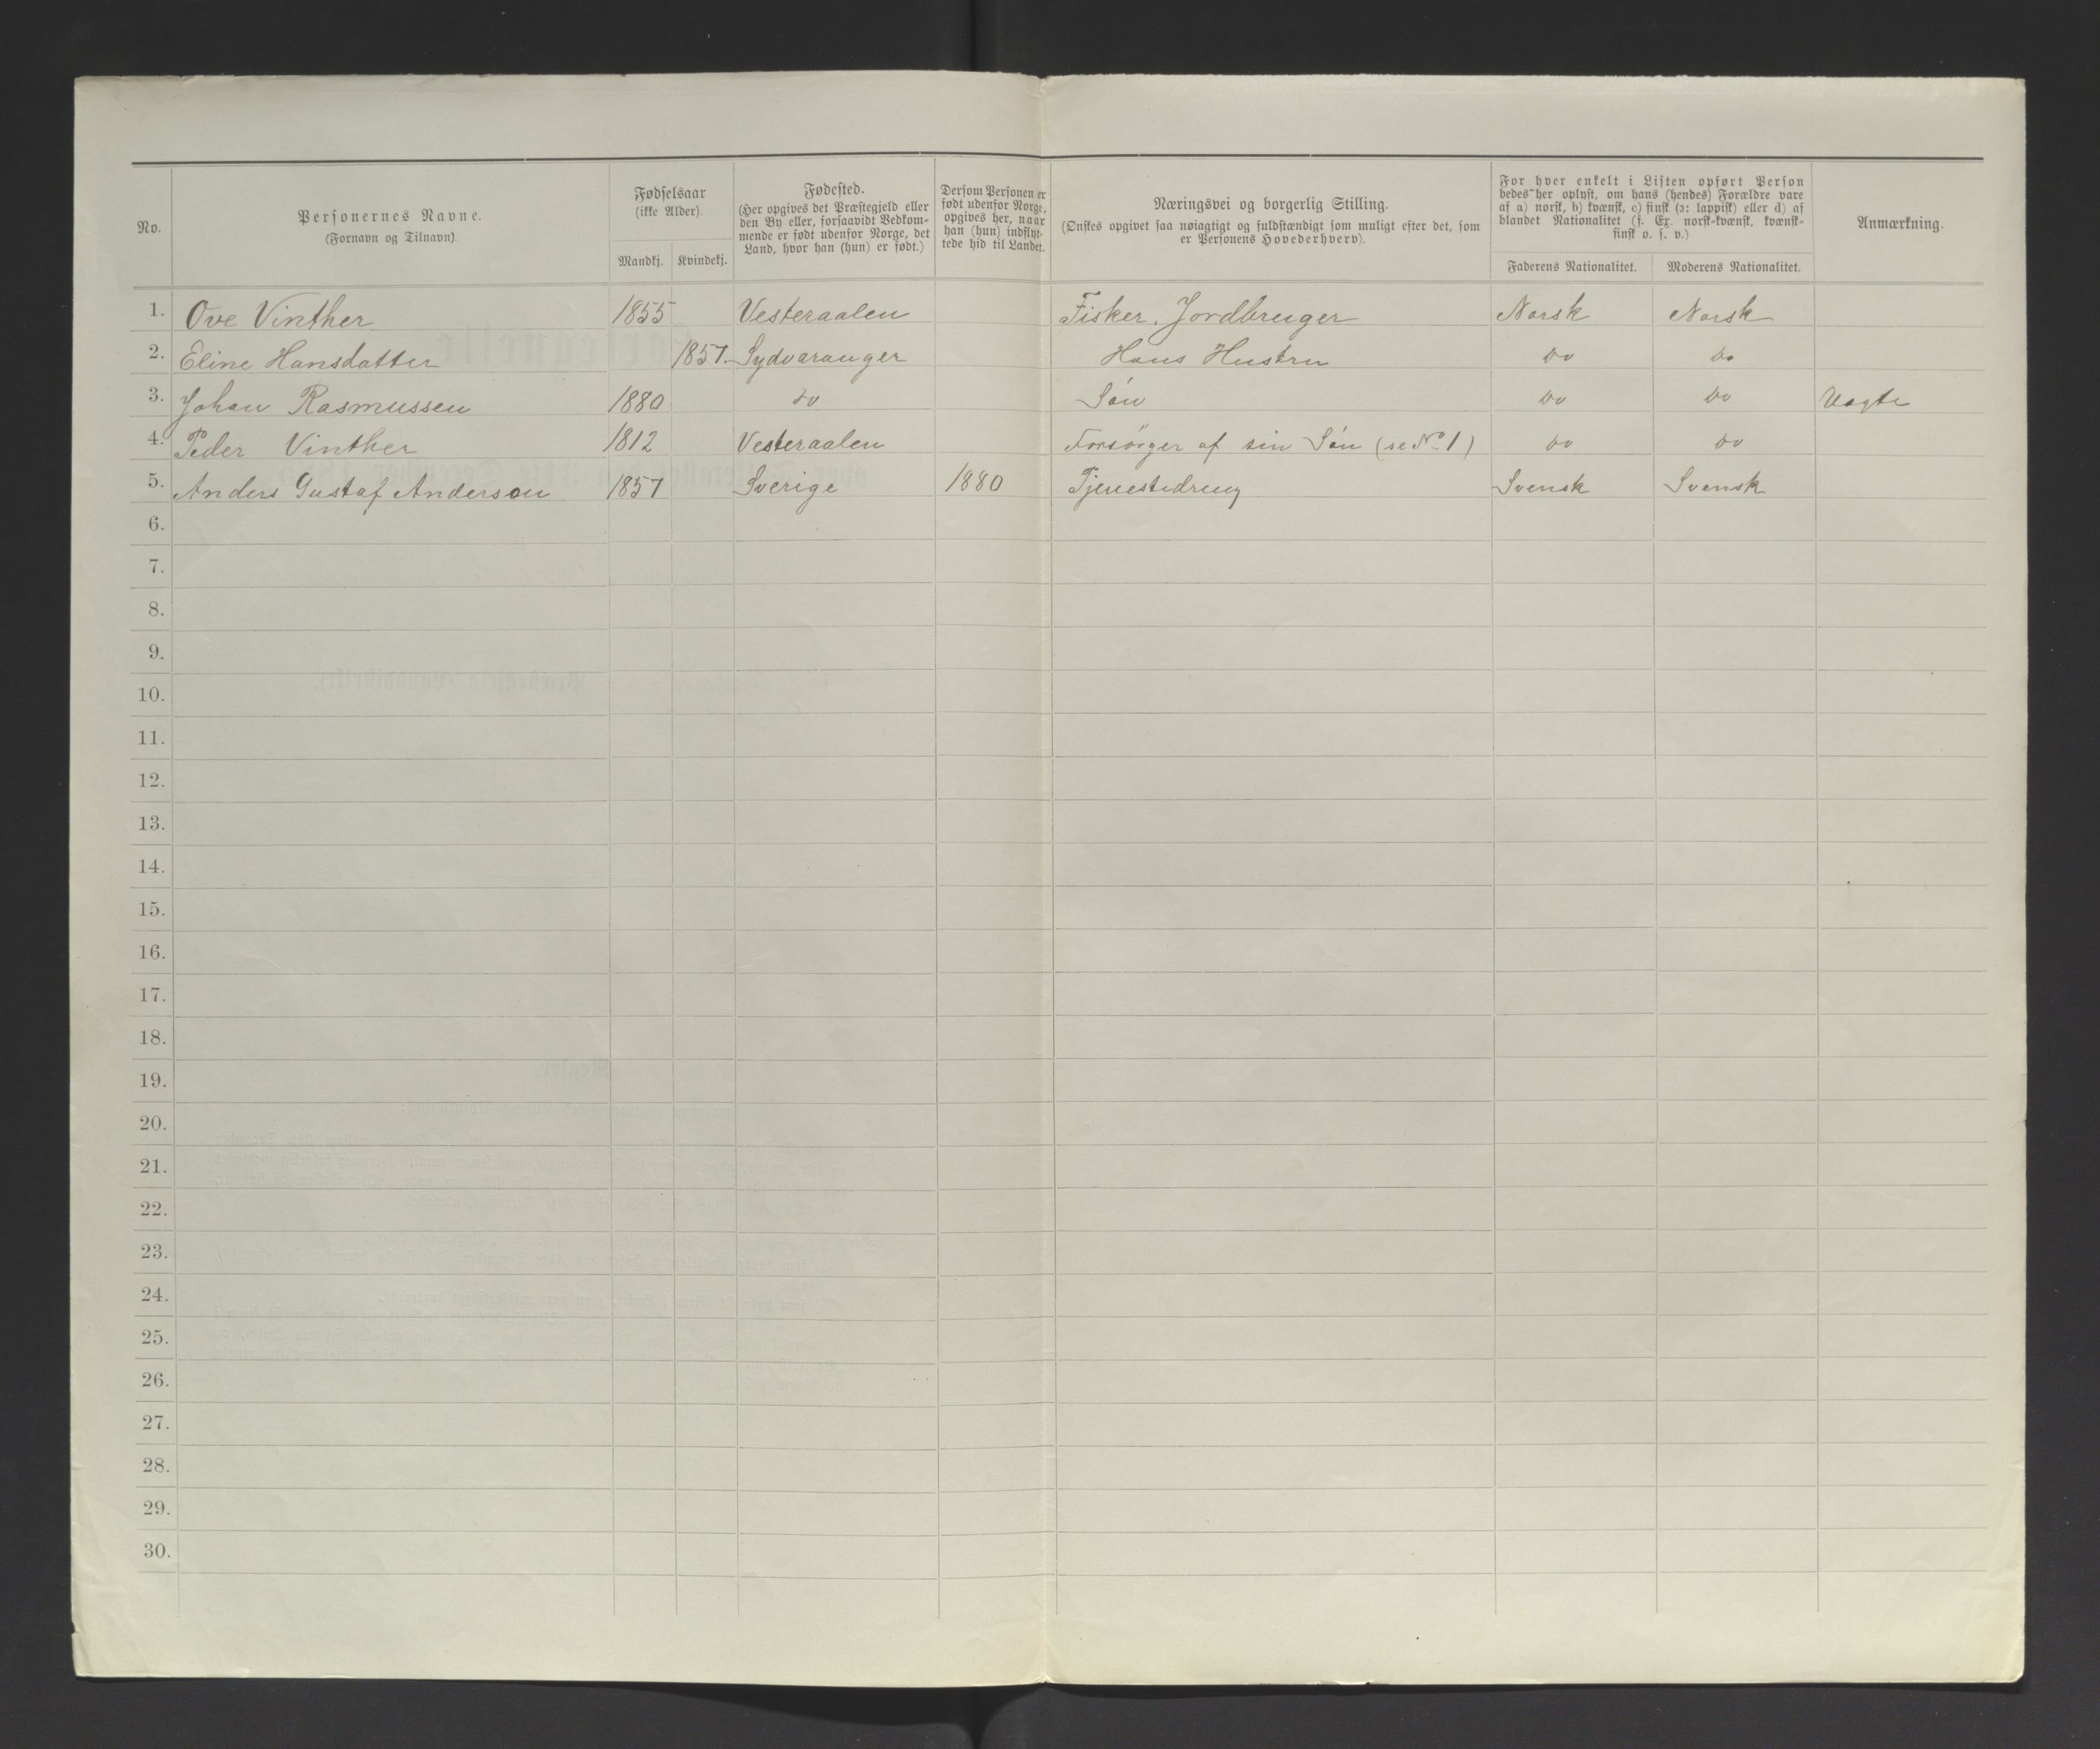 No.
Personernes Navne.
(Fornavn og Tilnavn).
Fødselsaar
(ikke Alder).
Mandkj. Kvindekj.
Fødested.
(Her opgives det Præstegjeld eller
den By eller, forsaavidt Vedkom-
mende er født udenfor Norge, det
Land, hvor han (hun) er født.)
Dersom Personen er
født udenfor Norge,
opgives her, naar
han (hun) indflyt-
tede hid til Landet.
Næringsvei og borgerlig Stilling.
(Ønskes opgivet saa nøiagtigt og fuldstændigt som muligt efter det, som
er Personens Hovederhverv).
For hver enkelt i Listen opført Person
bedes her oplyst, om hans (hendes) Forældre vare
af a) norsk, b) kvænsk, c) finsk (ɔ: lappisk) eller d) af
blandet Nationalitet (f. Ex. norsk-kvænsk, kvænsk-
finsk o. s. v.)
Faderens Nationalitet. Moderens Nationalitet.
Anmærkning.
1. Ove Vinther 1855 Vesteraalen Fisker, Jordbruger Norsk Norsk
2. Eline Hansdatter 1857. Sydvaranger Hans Hustru Do Do
3. Johan Rasmussen 1880 Do Søn Do Do Uægte
4. Peder Vinther 1812 Vesteraalen Forsørger af sin Søn (se No 1) Do Do
5. Anders Gustaf Anderson 1857 Sverige 1880 Tjenestedreng Svensk Svensk
6.
7.
8.
9.
10.
11.
12.
13.
14.
15.
16.
17.
18.
19.
20.
21.
22.
23.
24.
25.
26.
27.
28.
29.
30.